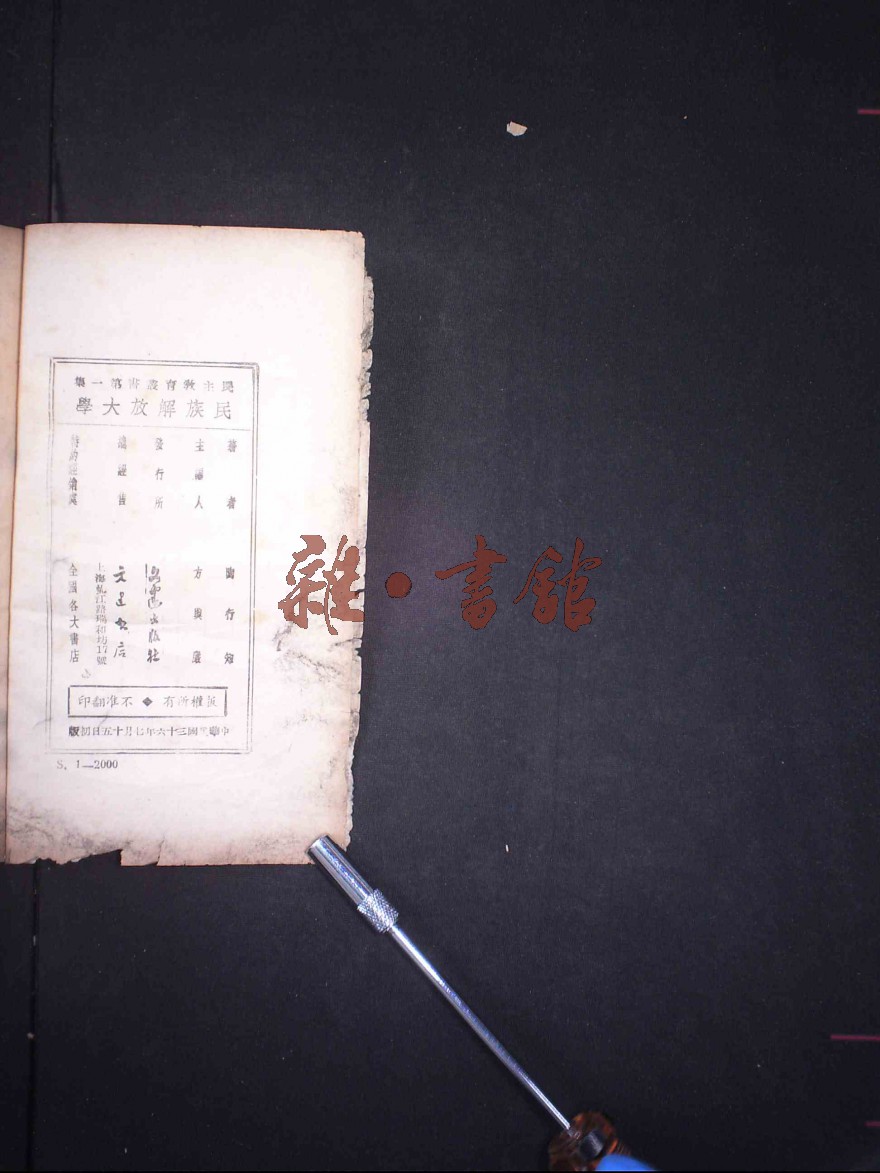 民主教育叢書第一集
民族解放大學
著者 陶行知
主編人 方與嚴
發行所 出版社
總經售 文通書店
上海虬江路瑞和坊17號
特約經售處 全國各大書店
版權所有 ◆ 不准翻印
中華民國三十六年七月十五日初版
S. 1—2000
雜·書館